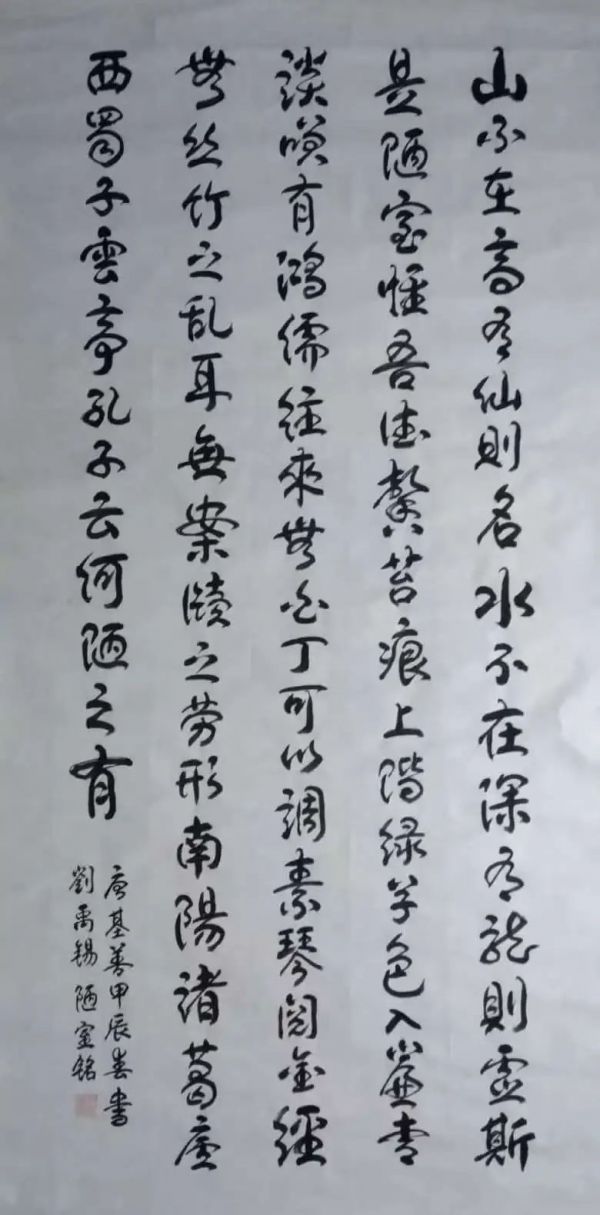 山不在高有仙則名水不在深有龙則灵斯
是陋室惟吾德馨苔痕上階绿草色入簾青
談笑有鸿儒往來無白丁可以調素琴阅金經
無丝竹之乱耳無案牍之劳形南陽诸葛庐
西蜀子雲亭孔子云何陋之有
唐基善甲辰春書
劉禹锡陋室铭